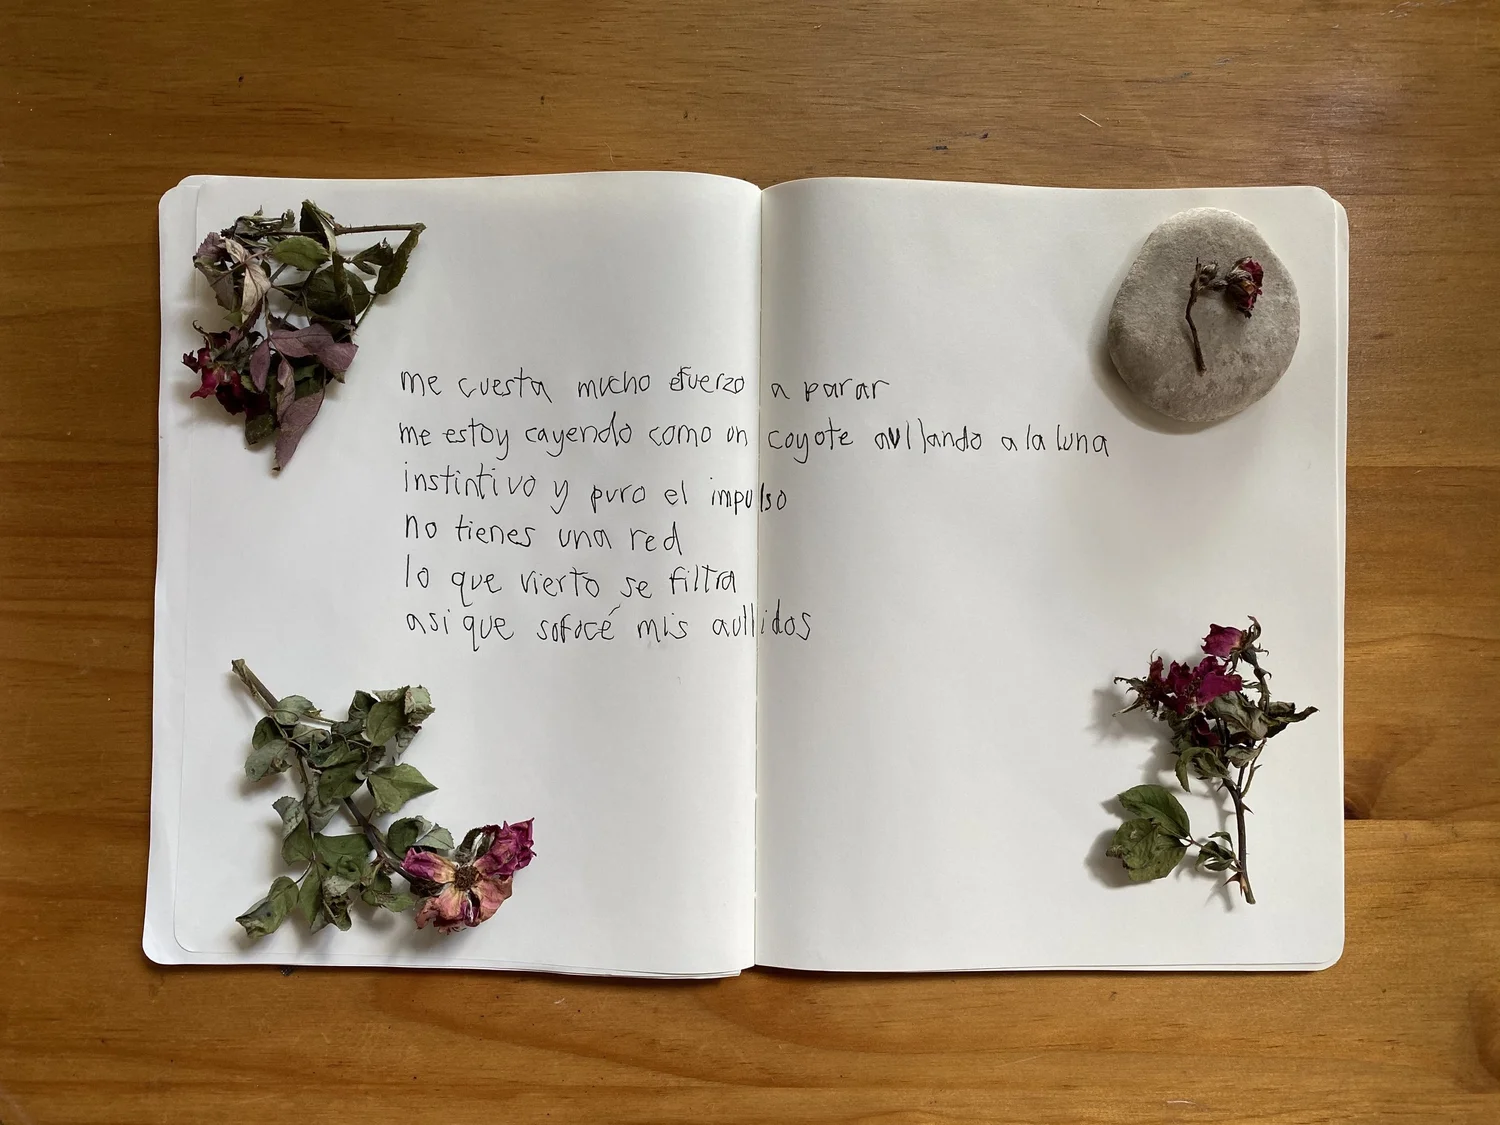 me cuesta mucho efuerzo a parar
me estoy cayendo como un coyote aullando a la luna
instintivo y puro el impulso
no tienes una red
lo que vierto se filtra
asi que sofocé mis aullidos